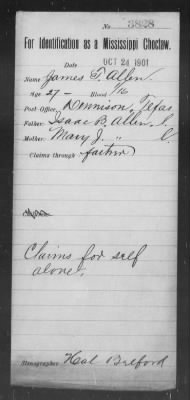 No. 3828
For Identification as a Mississippi Choctaw.
Date OCT 24 1901
Name James T. Allen.
Age 27 - Blood 1/16
Post-Office, Dennison, Texas
Father: Isaac B. Allen, l.
Mother: Mary J. " l.
Claims through father
Claims for self
alone.
Stenographer Hal Belford